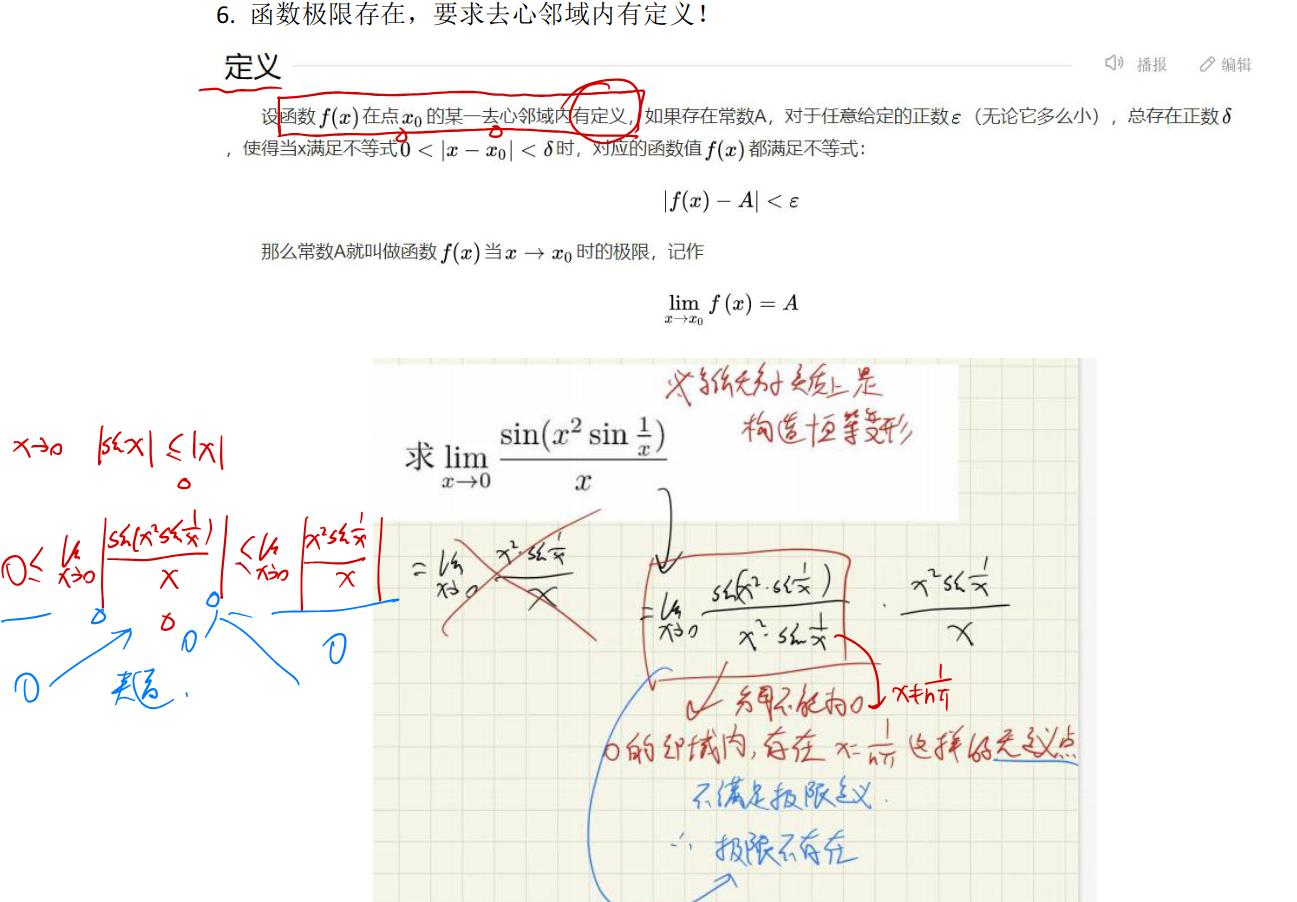 6. 函数极限存在，要求去心邻域内有定义！
定义
播报 编辑
设函数 f(x) 在点 x₀ 的某一去心邻域内有定义，如果存在常数A，对于任意给定的正数 ε（无论它多么小），总存在正数 δ
，使得当x满足不等式 0 < |x − x₀| < δ 时，对应的函数值 f(x) 都满足不等式：
|f(x) − A| < ε
那么常数A就叫做函数 f(x) 当 x → x₀ 时的极限，记作
lim x→x₀ f(x) = A
义 等价无穷小 实质上是
构造恒等变形
求 lim x→0 sin(x² sin 1/x) / x
x→0 |sin x| ≤ |x|
0
0 ≤ lim x→0 |sin(x² sin 1/x) / x| ≤ lim x→0 |x² sin 1/x / x|
0 0 0 0 0
0 夹逼.
= lim x→0 x²·sin 1/x / x
= lim x→0 sin(x²·sin 1/x) / x²·sin 1/x · x² sin 1/x / x
分母不能为0 x≠1/nπ
0的邻域内，存在 x=1/nπ 这样的无定义点
不满足极限定义.
∴ 极限不存在